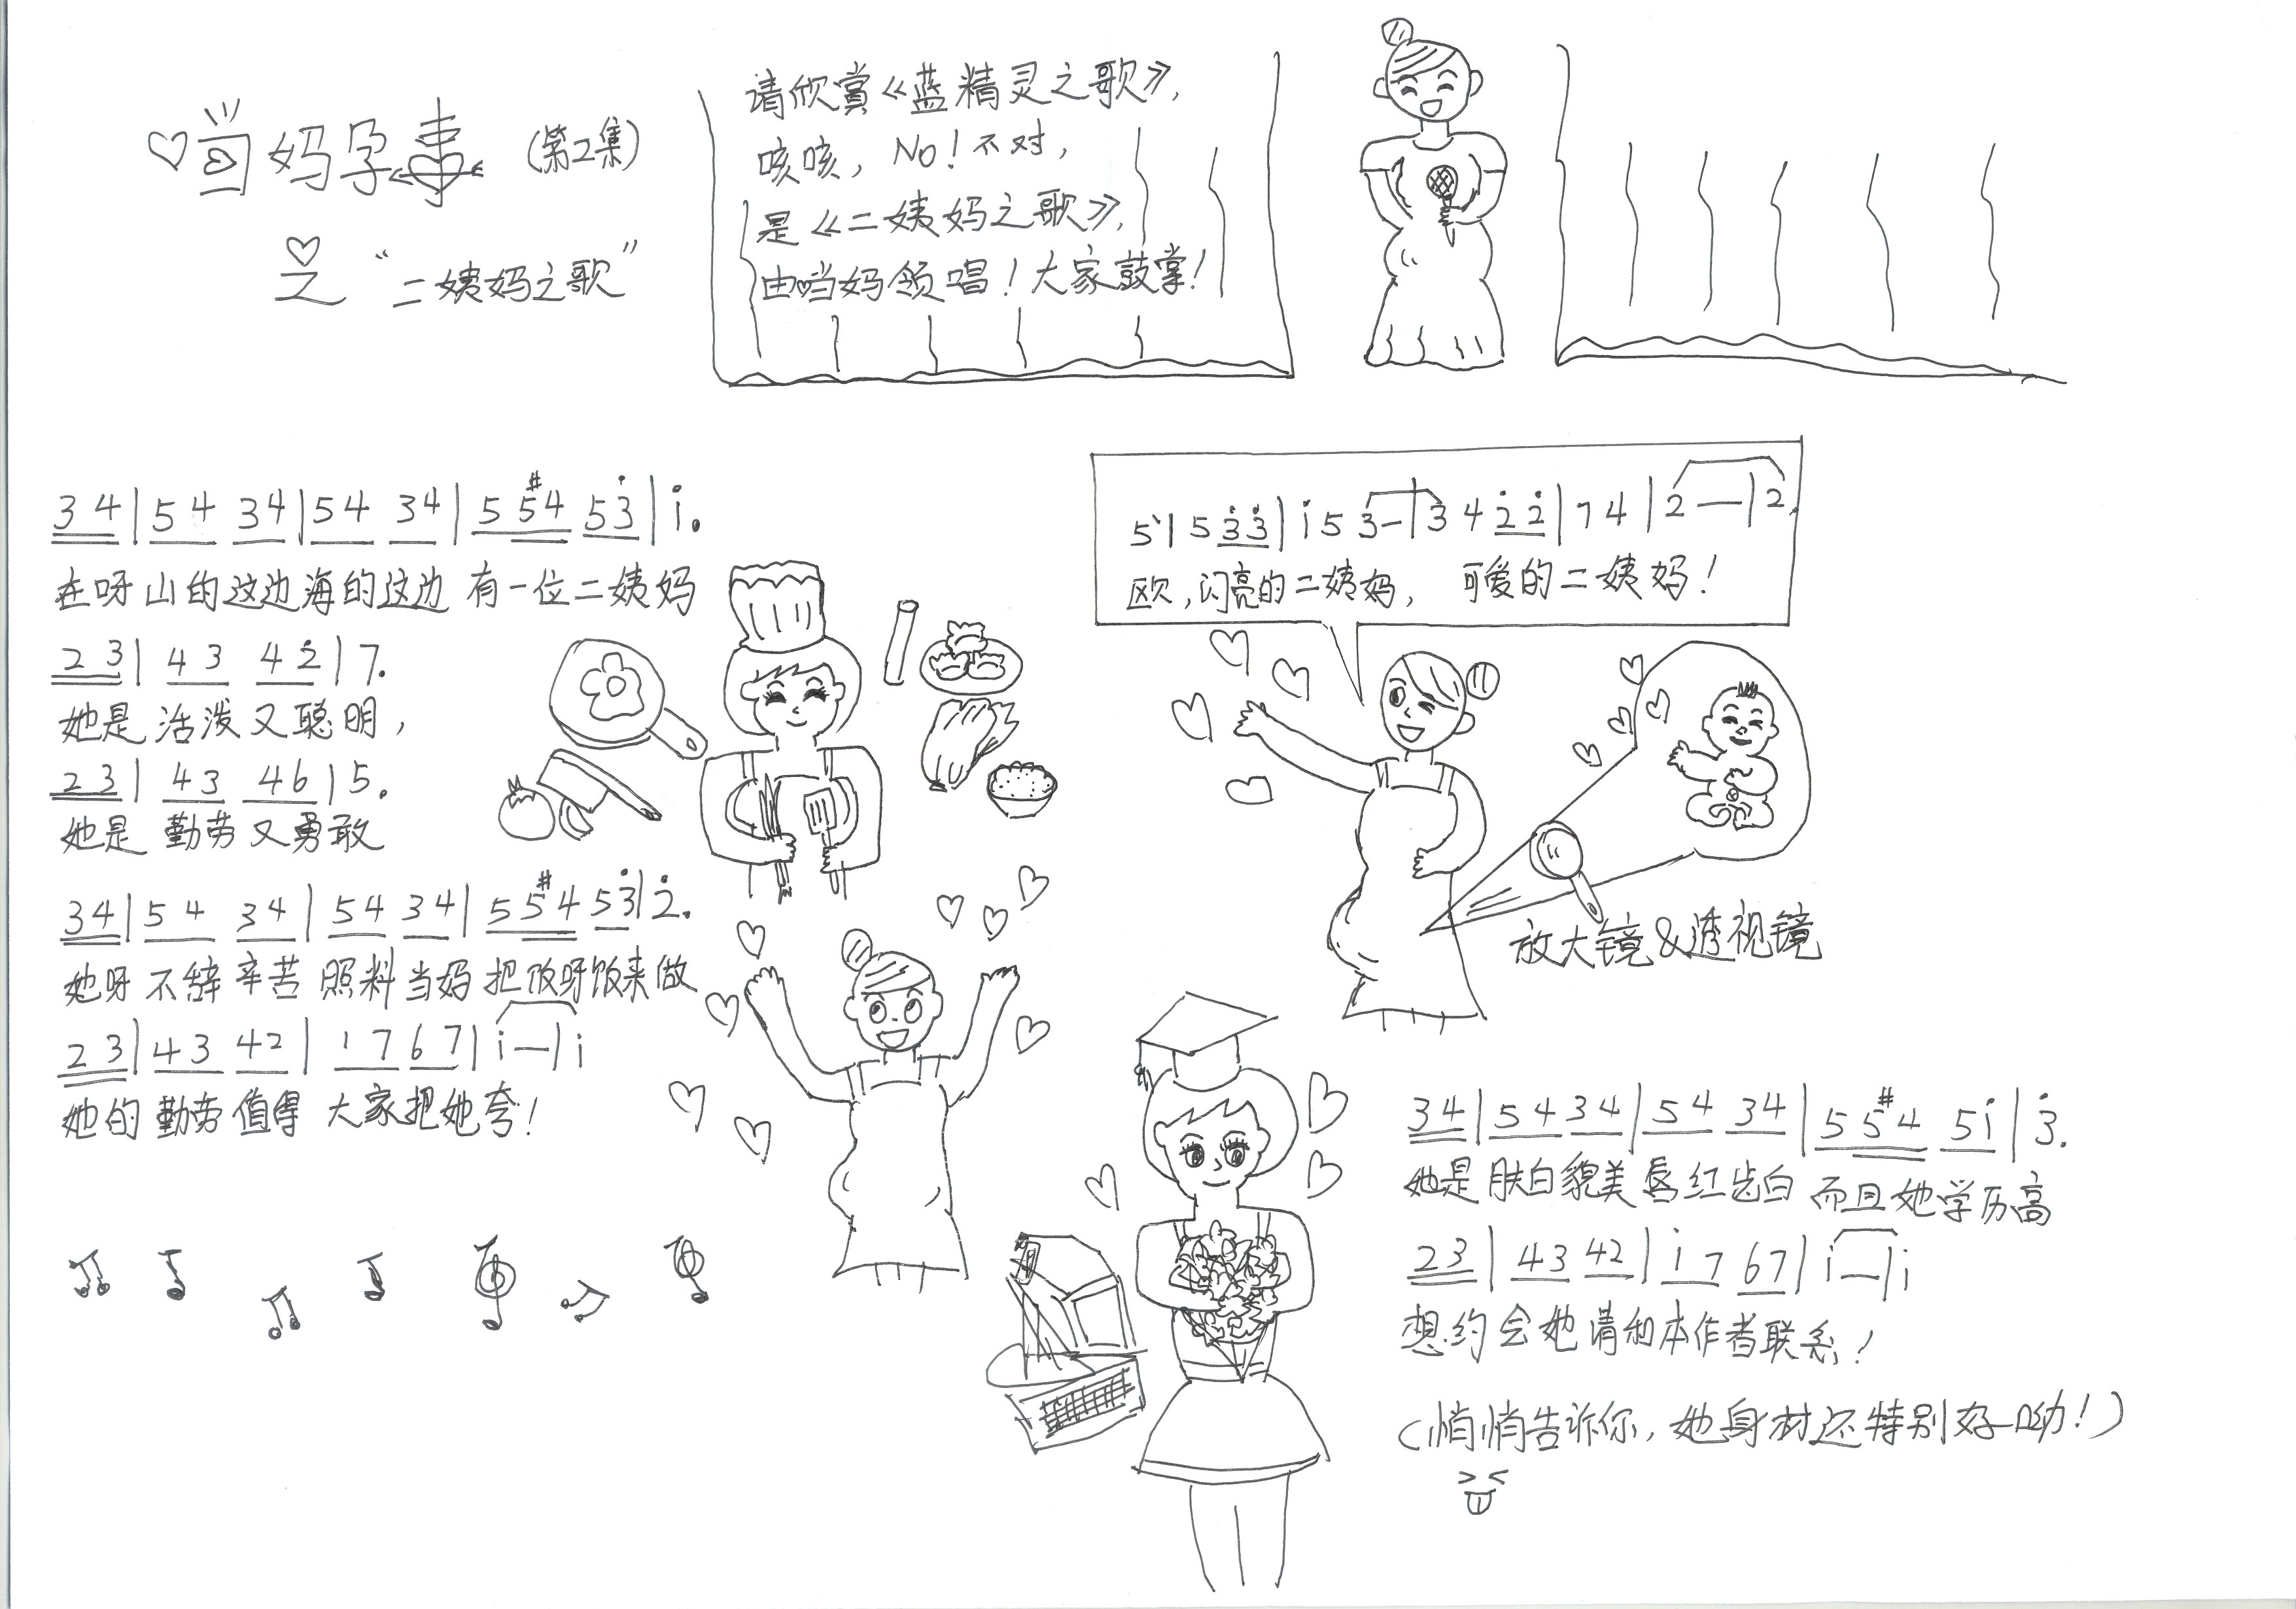 当妈孕事 (第2集)
之 “二姨妈之歌”
请欣赏《蓝精灵之歌》,
咳咳, No! 不对,
是《二姨妈之歌》,
由当妈领唱! 大家鼓掌!
3 4 | 5 4 3 4 | 5 4 3 4 | 5 5 #4 5 3 | i.
在呀山的这边海的这边 有一位二姨妈
2 3 | 4 3 4 2 | 7.
她是 活泼又聪明,
2 3 | 4 3 4 6 | 5.
她是 勤劳又勇敢
3 4 | 5 4 3 4 | 5 4 3 4 | 5 5 #4 5 3 | 2.
她呀 不辞辛苦 照料当妈 把饭呀饭来做
2 3 | 4 3 4 2 | 1 7 6 7 | i — | i
她的 勤劳值得 大家把她夸!
5 | 5 3 3 | i 5 3 — | 3 4 2 2 | 7 4 | 2 — | 2
欧, 闪亮的二姨妈, 可爱的二姨妈!
放大镜&透视镜
3 4 | 5 4 3 4 | 5 4 3 4 | 5 5 #4 5 i | 3.
她是 肤白貌美 唇红齿白 而且她学历高
2 3 | 4 3 4 2 | i 7 6 7 | i — | i
想约会她请和本作者联系!
(悄悄告诉你, 她身材还特别好呦!)